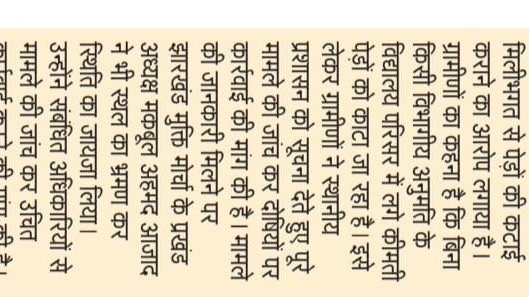 मिलीभगत से पेड़ों की कटाई
कराने का आरोप लगाया है।
ग्रामीणों का कहना है कि बिना
किसी विभागीय अनुमति के
विद्यालय परिसर में लगे कीमती
पेड़ों को काटा जा रहा है। इसे
लेकर ग्रामीणों ने स्थानीय
प्रशासन को सूचना देते हुए पूरे
मामले की जांच कर दोषियों पर
कार्रवाई की मांग की है। मामले
की जानकारी मिलने पर
झारखंड मुक्ति मोर्चा के प्रखंड
अध्यक्ष मकबूल अहमद आजाद
ने भी स्थल का भ्रमण कर
स्थिति का जायजा लिया।
उन्होंने संबंधित अधिकारियों से
मामले की जांच कर उचित
कार्रवाई करने की मांग की है।